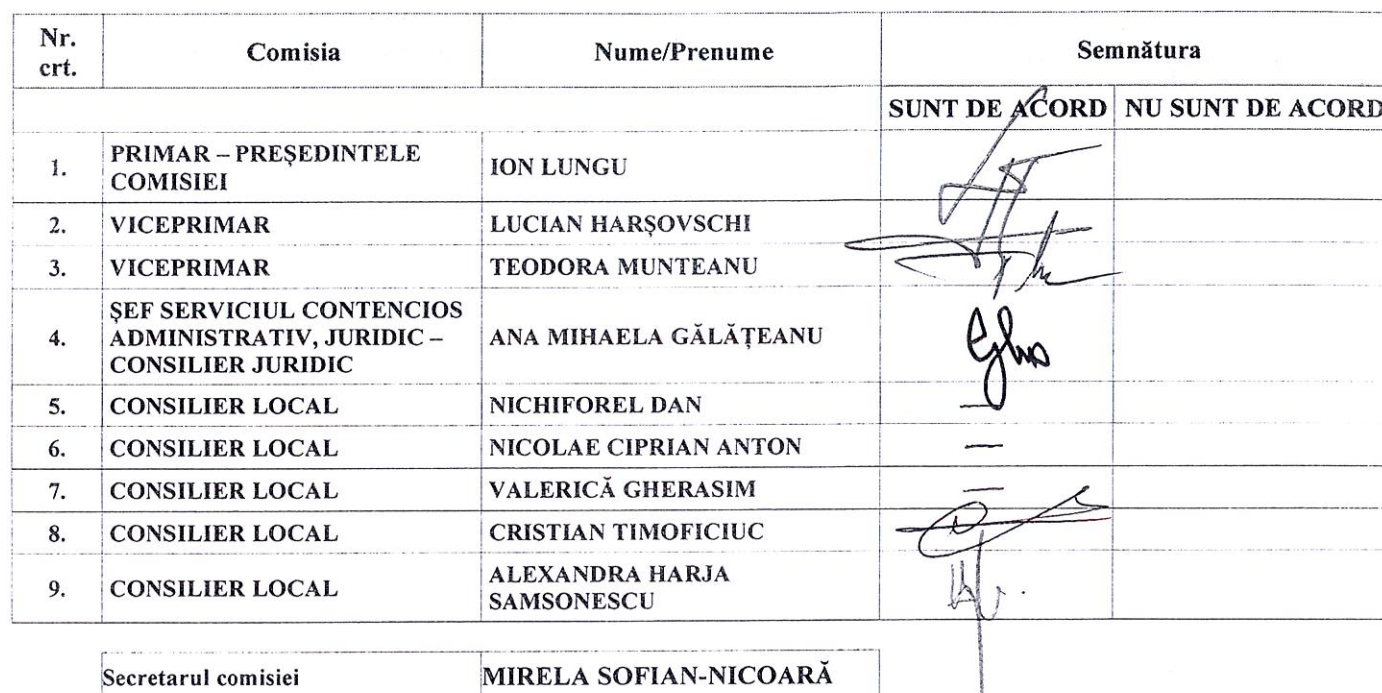 Nr. crt. Comisia Nume/Prenume Semnătura
SUNT DE ACORD NU SUNT DE ACORD
1. PRIMAR – PREȘEDINTELE COMISIEI ION LUNGU
2. VICEPRIMAR LUCIAN HARȘOVSCHI
3. VICEPRIMAR TEODORA MUNTEANU
4. ȘEF SERVICIUL CONTENCIOS ADMINISTRATIV, JURIDIC – CONSILIER JURIDIC ANA MIHAELA GĂLĂȚEANU
5. CONSILIER LOCAL NICHIFOREL DAN —
6. CONSILIER LOCAL NICOLAE CIPRIAN ANTON —
7. CONSILIER LOCAL VALERICĂ GHERASIM —
8. CONSILIER LOCAL CRISTIAN TIMOFICIUC
9. CONSILIER LOCAL ALEXANDRA HARJA SAMSONESCU
Secretarul comisiei MIRELA SOFIAN-NICOARĂ